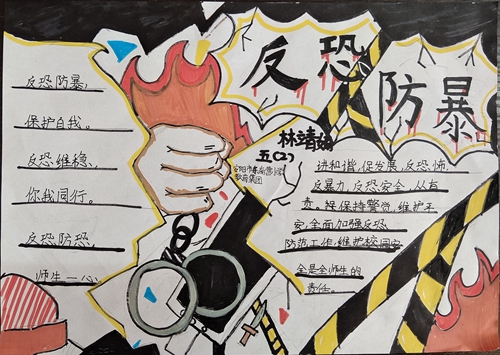 反恐
防暴
反恐防暴，
保护自我。
反恐维稳，
你我同行。
反恐防恐，
师生一心。
林靖
五(2)
讲和谐,促发展,反恐怖,
反暴力,反恐安全,从自
我保持警觉,维护平
安,全面加强反恐
防范工作,维护校园安
全是全师生的
责任。